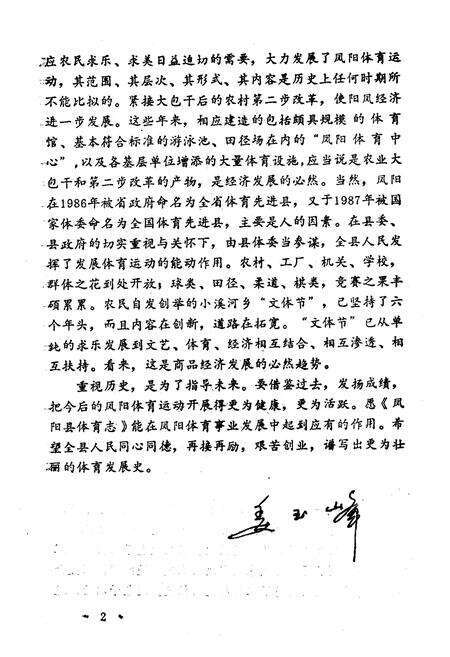 应农民求乐、求美日益迫切的需要，大力发展了凤阳体育运
动，其范围、其层次、其形式、其内容是历史上任何时期所
不能比拟的。紧接大包干后的农村第二步改革，使阳凤经济
进一步发展。这些年来，相应建造的包括颇具规模的体育
馆、基本符合标准的游泳池、田径场在内的“凤阳体育中
心”，以及各基层单位增添的大量体育设施，应当说是农业大
包干和第二步改革的产物，是经济发展的必然。当然，凤阳
在1986年被省政府命名为全省体育先进县，又于1987年被国
家体委命名为全国体育先进县，主要是人的因素。在县委、
县政府的切实重视与关怀下，由县体委当参谋，全县人民发
挥了发展体育运动的能动作用。农村、工厂、机关、学校，
群体之花到处开放；球类、田径、柔道、棋类，竞赛之果丰
硕累累。农民自发创举的小溪河乡“文体节”，已坚持了六
个年头，而且内容在创新，道路在拓宽。“文体节”已从单
纯的求乐发展到文艺、体育、经济相互结合、相互渗透、相
互扶持。看来，这是商品经济发展的必然趋势。
重视历史，是为了指导未来。要借鉴过去，发扬成绩，
把今后的凤阳体育运动开展得更为健康，更为活跃。愿《凤
阳县体育志》能在凤阳体育事业发展中起到应有的作用。希
望全县人民同心同德，再接再励，艰苦创业，谱写出更为壮
丽的体育发展史。
姜玉峰
· 2 ·